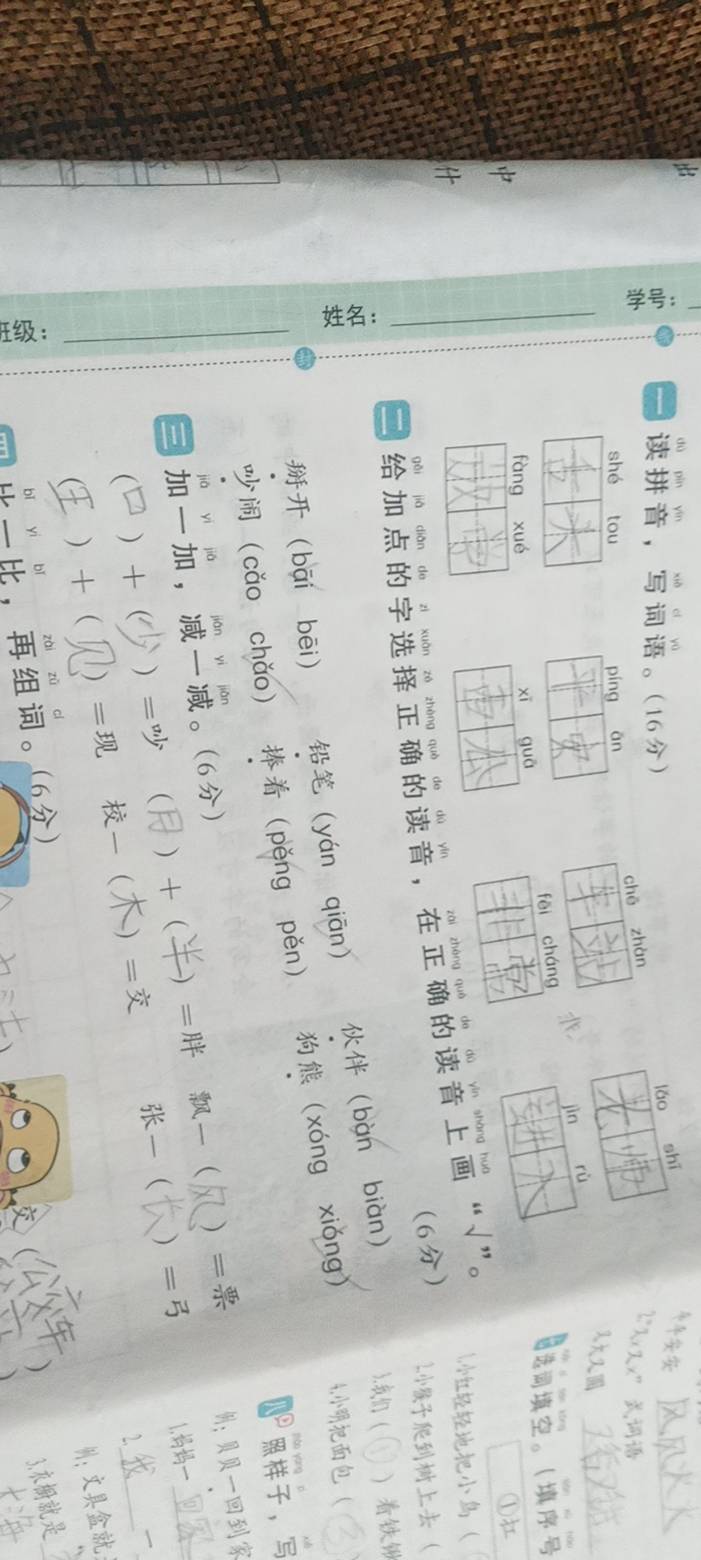 学号：
姓名：
班级：
一 读拼音，写词语。(16分)
shé tou píng ān chē zhàn lǎo shī
舌头 平安 车站 老师
fàng xué xī guā fēi cháng jìn rù
放学 西瓜 非常 进入
二 给加点的字选择正确的读音，在正确的读音上画“√”。
(6分)
掰开 (bāi bēi) 铅笔 (yán qiān) 伙伴 (bàn biàn)
吵闹 (cǎo chǎo) 捧着 (pěng pěn) 狗熊 (xóng xióng)
三 加一加，减一减。(6分)
(口)+(少)=吵 (月)+(半)=胖 飘—(风)=票
(王)+(见)=现 校—(木)=交 张—(长)=弓
四 比一比，再组词。(6分)
交 (公交车)
平平安安 风风火火
式词语
又大又圆
选词填空。(填序号
①扛
1.小红轻轻地把小鸟 (
2.小猴子爬到树上去 (
3.我们 (①) 着铁锹
4.小明把面包 (③
八 照样子，写
例：贝贝一回到家
1.妈妈一 回家
2. 我 一
例：文具盒就
3.衣橱就是
大海